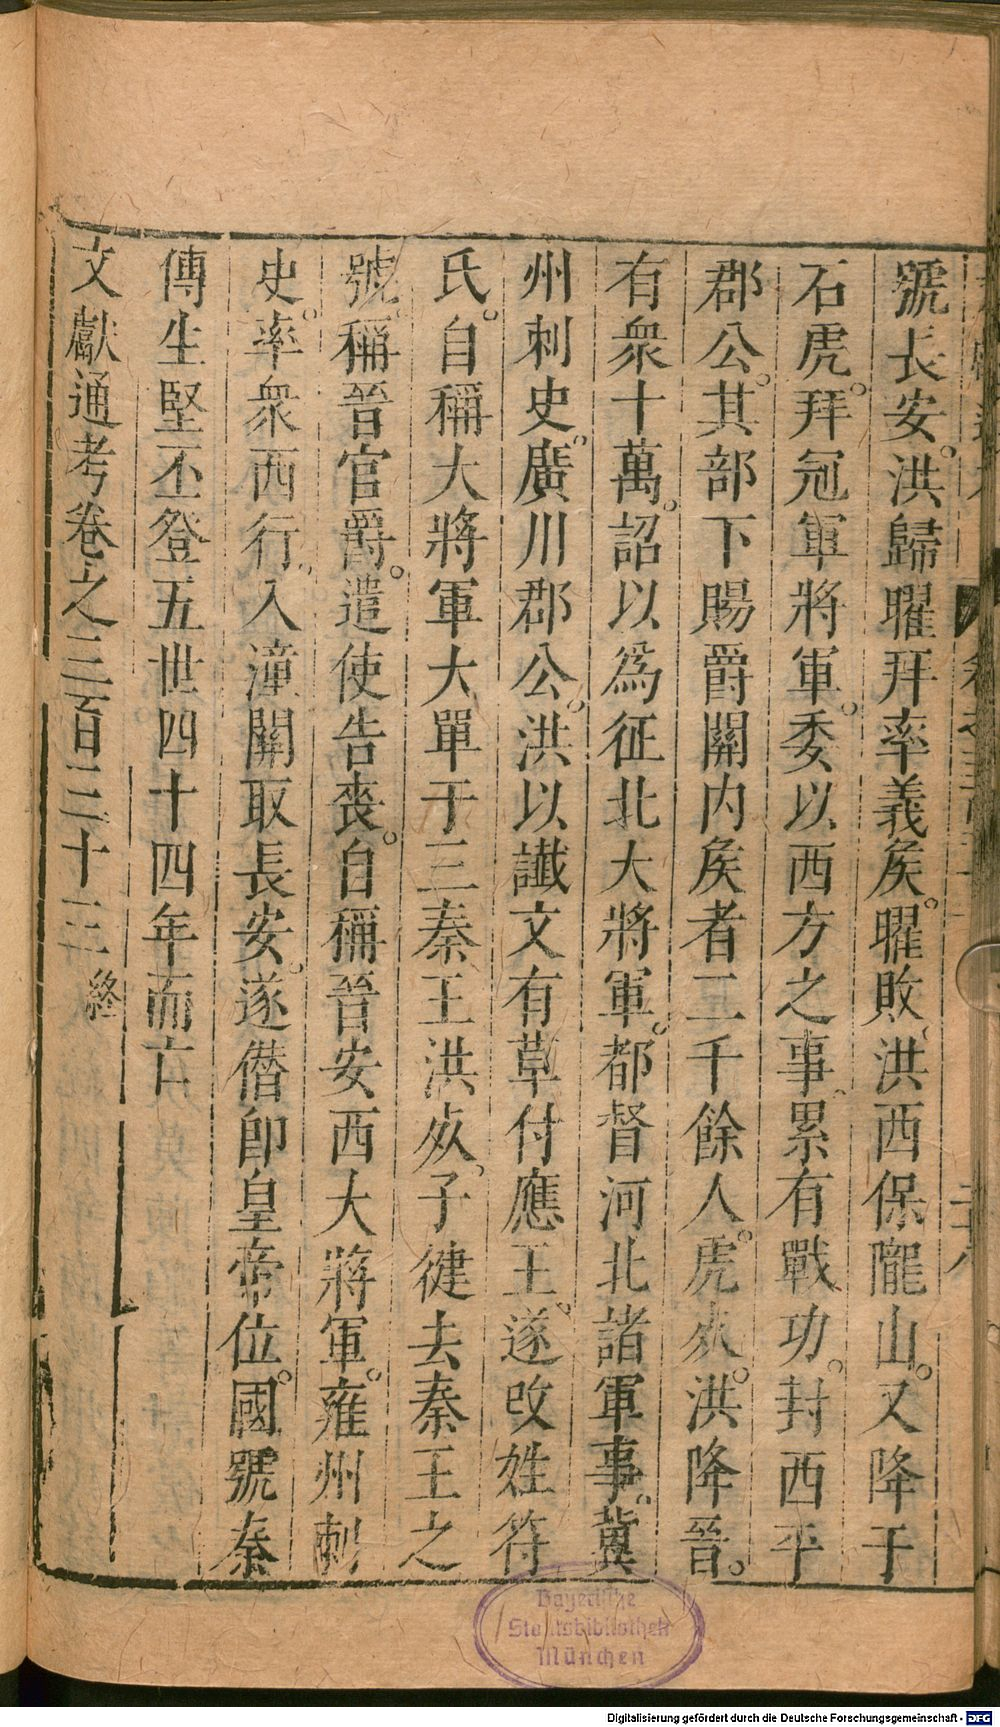 號長安。洪歸曜拜率義矦。曜敗、洪西保隴山。又降于
石虎。拜冠軍將軍。委以西方之事。累有戰功。封西平
郡公。其部下賜爵關内矦者二千餘人。虎死。洪降晉。
有衆十萬。詔以爲征北大將軍。都督河北諸軍事。冀
州刺史。廣川郡公。洪以讖文有草付應王。遂改姓符
氏。自稱大將軍大單于三秦王洪死。子健去秦王之
號。稱晉官爵。遣使告喪。自稱晉安西大將軍。雍州刺
史。率衆西行。入潼關取長安。遂僭即皇帝位。國號秦
傳生堅丕登五世四十四年而亡
文獻通考卷之三百二十三 終
Bayerische
Staatsbibliothek
München
Digitalisierung gefördert durch die Deutsche Forschungsgemeinschaft - DFG